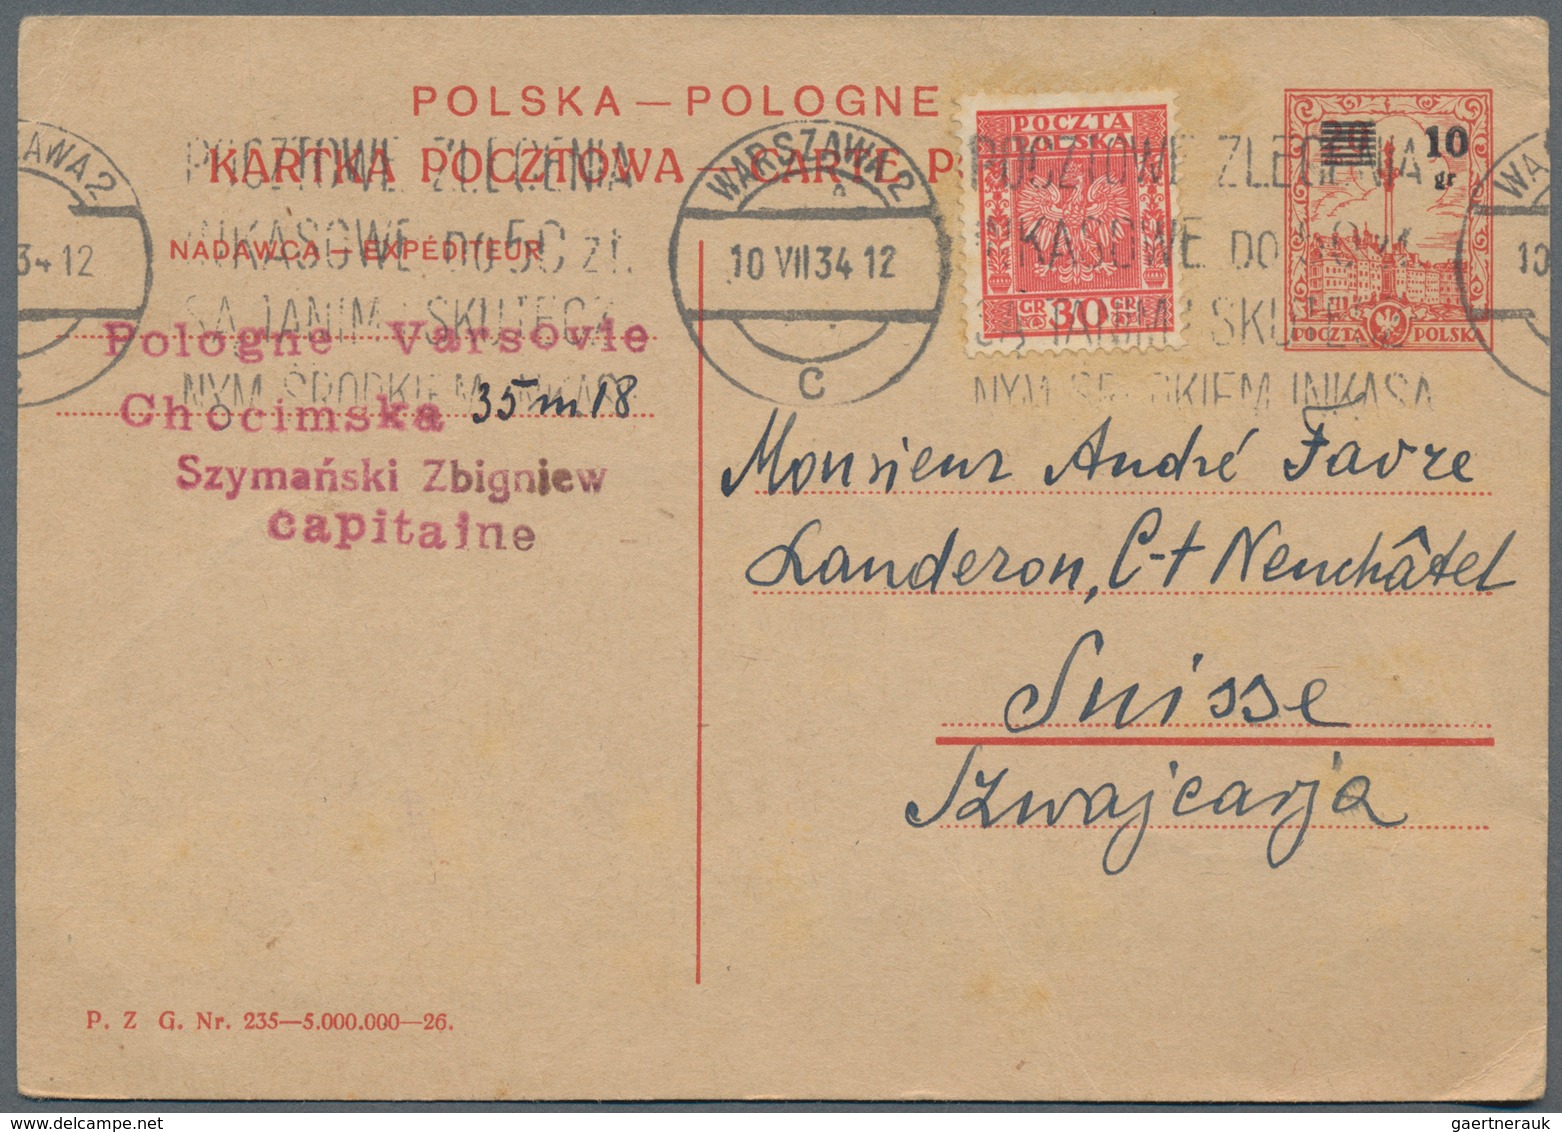 POLSKA — POLOGNE
KARTKA POCZTOWA — CARTE P
NADAWCA — EXPÉDITEUR
POCZTOWE ZLECENIA
INKASOWE DO 50 zł.
SĄ TANIM I SKUTECZ
NYM ŚRODKIEM INKASA
WARSZAWA 2
10 VII 34 12
C
POCZTA
POLSKA
GR 30 GR
POCZTOWE ZLECENIA
INKASOWE DO
SĄ TANIM I SKUTECZ
NYM ŚRODKIEM INKASA
10
gr
POCZTA POLSKA
AWA 2
34 12
C
WA
10
Pologne Varsovie
Chocimska 35 m 18
Szymański Zbigniew
capitaine
Monsieur André Favre
Landeron, C-t Neuchâtel
Suisse
Szwajcarja
P. Z G. Nr. 235—5.000.000—26.
gaertnerauk